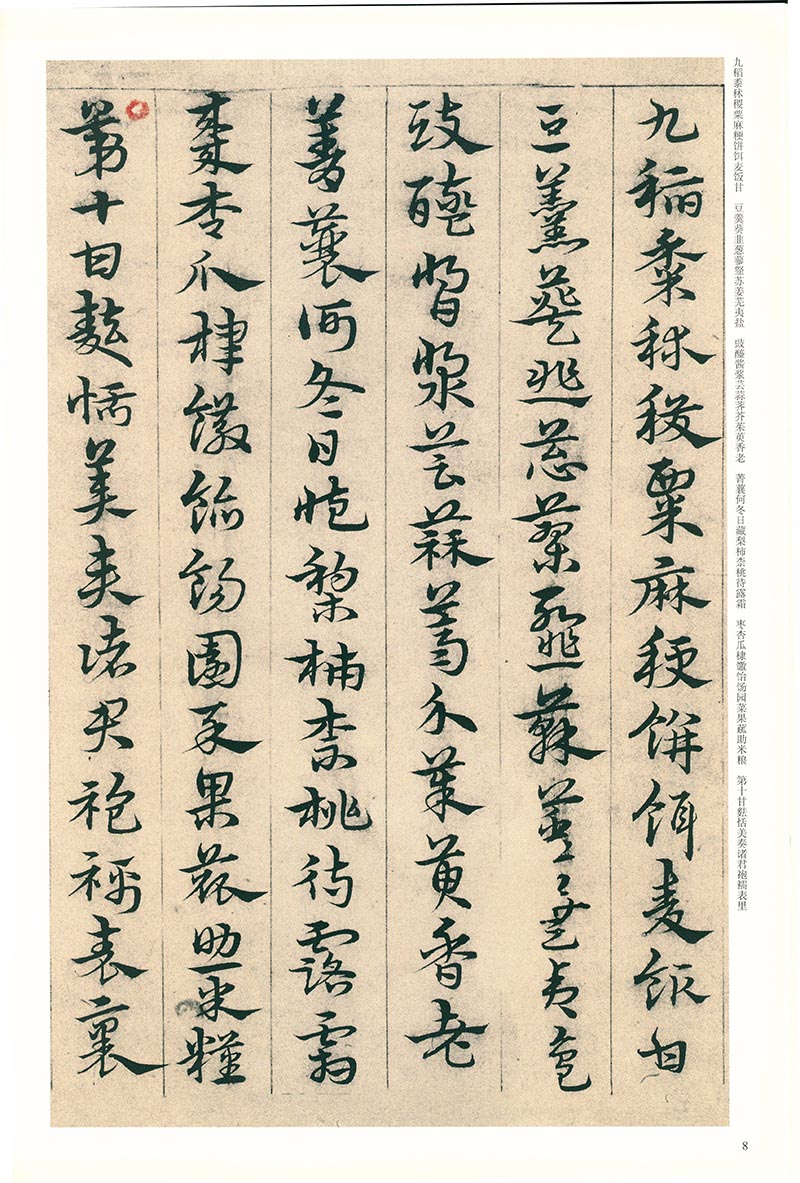 九稻黍秫稷粟麻粳饼饵麦饭甘　豆羹葵韭葱蓼
苏姜芜夷盐　豉醯酱浆芸蒜荠芥茱萸香老　菁蘘何冬日藏梨柿柰桃待露霜　枣杏瓜棣馓饴饧园菜果蓏助米粮　第十甘麩恬美奏诸君袍襦表里
九稻黍秫稷粟麻粳餅餌麦飯甘
豆羹葵韭葱蓼
蘇薑蕪夷鹽
豉醯醬漿芸蒜薺介茱萸香老
菁蘘何冬日藏梨柿柰桃待露霜
棗杏瓜棣饊飴餳園菜果蓏助米糧
第十甘麩恬美奏諸君袍襦表裏
8